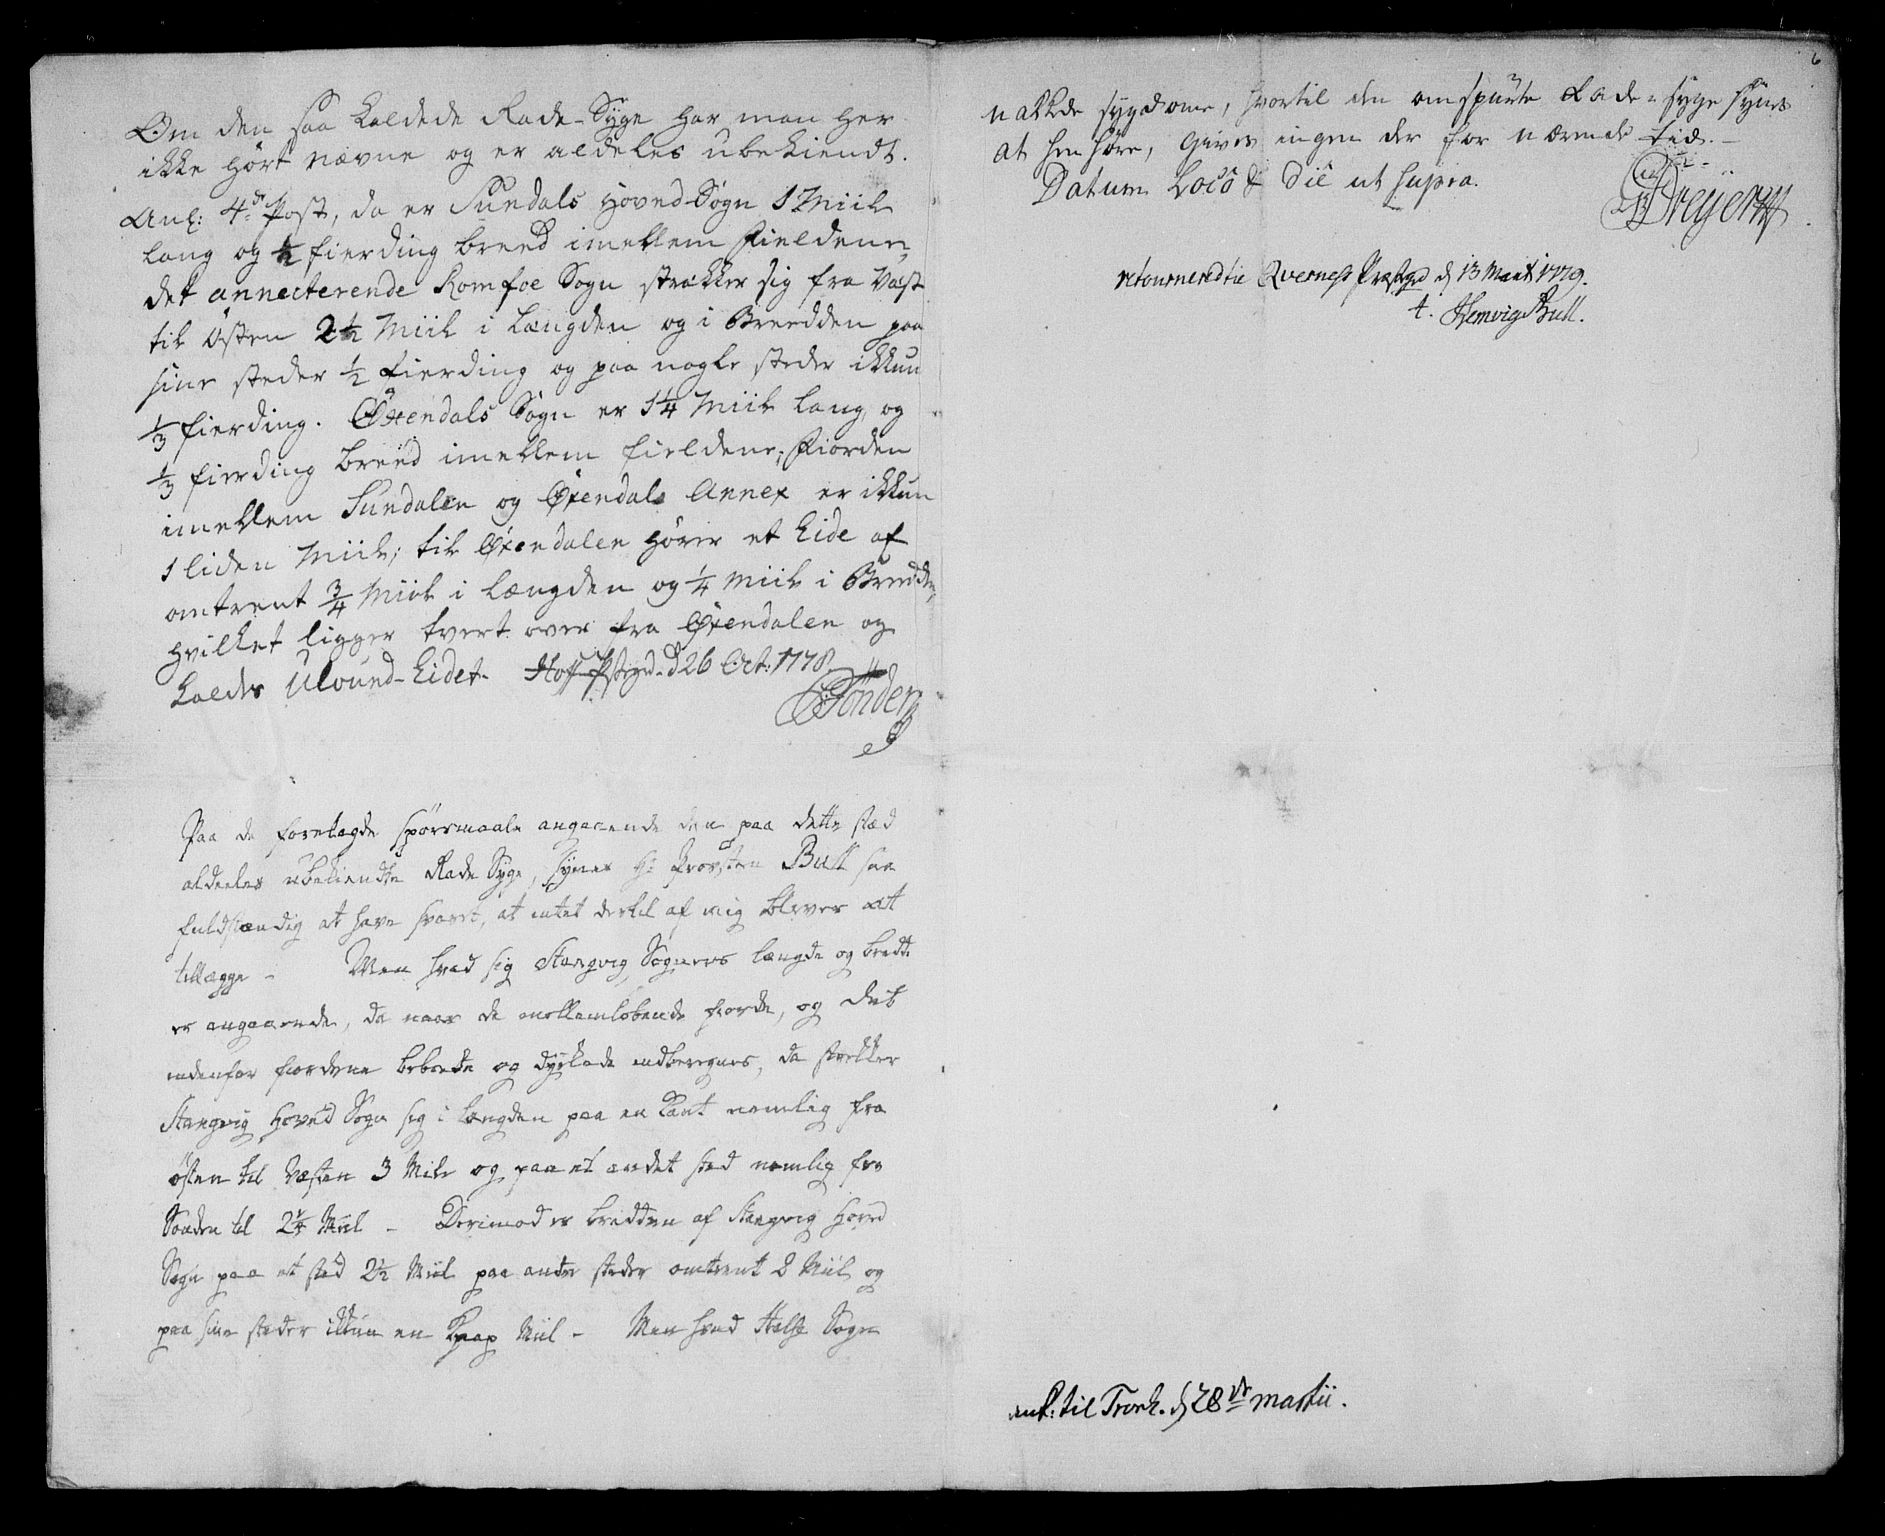 Om den saa kaldede Rade-Syge har man her
ikke hørt nævne og er aldeles ubekiendt.
Anl: 4de Post, da er Sundals Hoved-Sogn 1 Miil
lang og ½ fierding breed imellem Fieldene,
det annecterende Romfoe Sogn strækker sig fra Væst
til Østen 2½ Miil i Længden og i Breedden paa
sine steder ½ fierding og paa nogle steder ikkun
⅓ fierding. Øxendals Sogn er 1¼ Miil lang og
⅓ fierding breed imellem fieldene; Fiorden
imellem Sundalen og Øxendals Annex er ikkun
1 liden Miil; til Øxendalen hører et Eide af
omtrent ¾ Miil i Længden og ¼ Miil i Breedden,
hvilket ligger tvert over fra Øxendalen og
kaldes Ulvund-Eidet. Hoff Pstgrd. d 26 Oct: 1778
Tønder
Paa de foretagde spörsmaale angaaende den paa dette stæd
aldeeles ubekiendte Rade Syge, synes Hr Provsten Bull saa
fuldstændig at have svaret, at intet dertil af mig bliver at
tillægge - Men hvad sig Stangvig Sognets længde og bredde
er angaaende, da naar de mellemløbende fiorde, og det
indenfor fiordene beboede og dyrkede indberegnes, da strekker
Stangvig Hoved Sogn sig i Længden paa en Kant nemlig fra
østen til Væsten 3 Mile og paa et andet sted nemlig fra
Sønden til 2¼ Miil - Derimod er bredden af Stangvig Hoved
Sogn paa et sted 2½ Miil paa andre steder omtrent 2 Miil og
paa sine steder ikkun en knap Miil - Men hvad Halse Sogn
6
nakkede sygdome, hvortil den omspurte Rade-syge synes
at henhøre, gives ingen der for nærende tid. -
Datum Loco & Die ut supra.
Dreyer
retournered til Qvernes Præstgd d 13 Marti 1779.
t. Hemvig Bull.
ank: til Tronh. d 28de martii.